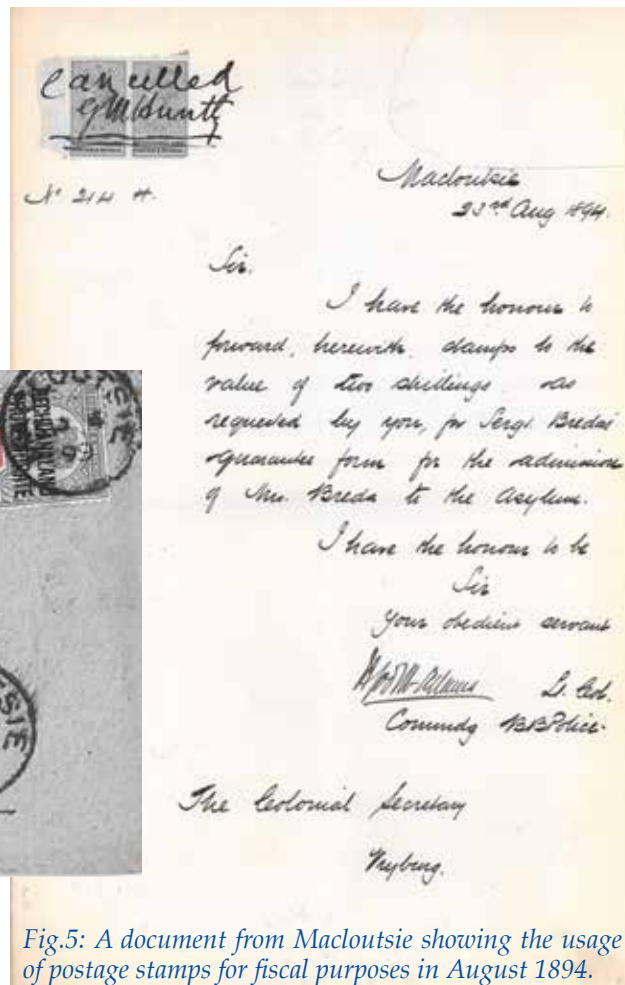 Cancelled
GMHuntt
No 214 H.
Macloutsie
23rd Aug 1894.
Sir.
I have the honour to
forward, herewith, stamps to the
value of two shillings as
requested by you, for Sergt. Bredas'
guarantee form for the admission
of Mrs. Breda to the Asylum.
I have the honour to be
Sir
Your obedient servant
Lt. Col.
Commdg BBPolice.
The Colonial Secretary
Vryburg.
BECHUANALAND
PROTECTORATE
Fig.5: A document from Macloutsie showing the usage
of postage stamps for fiscal purposes in August 1894.